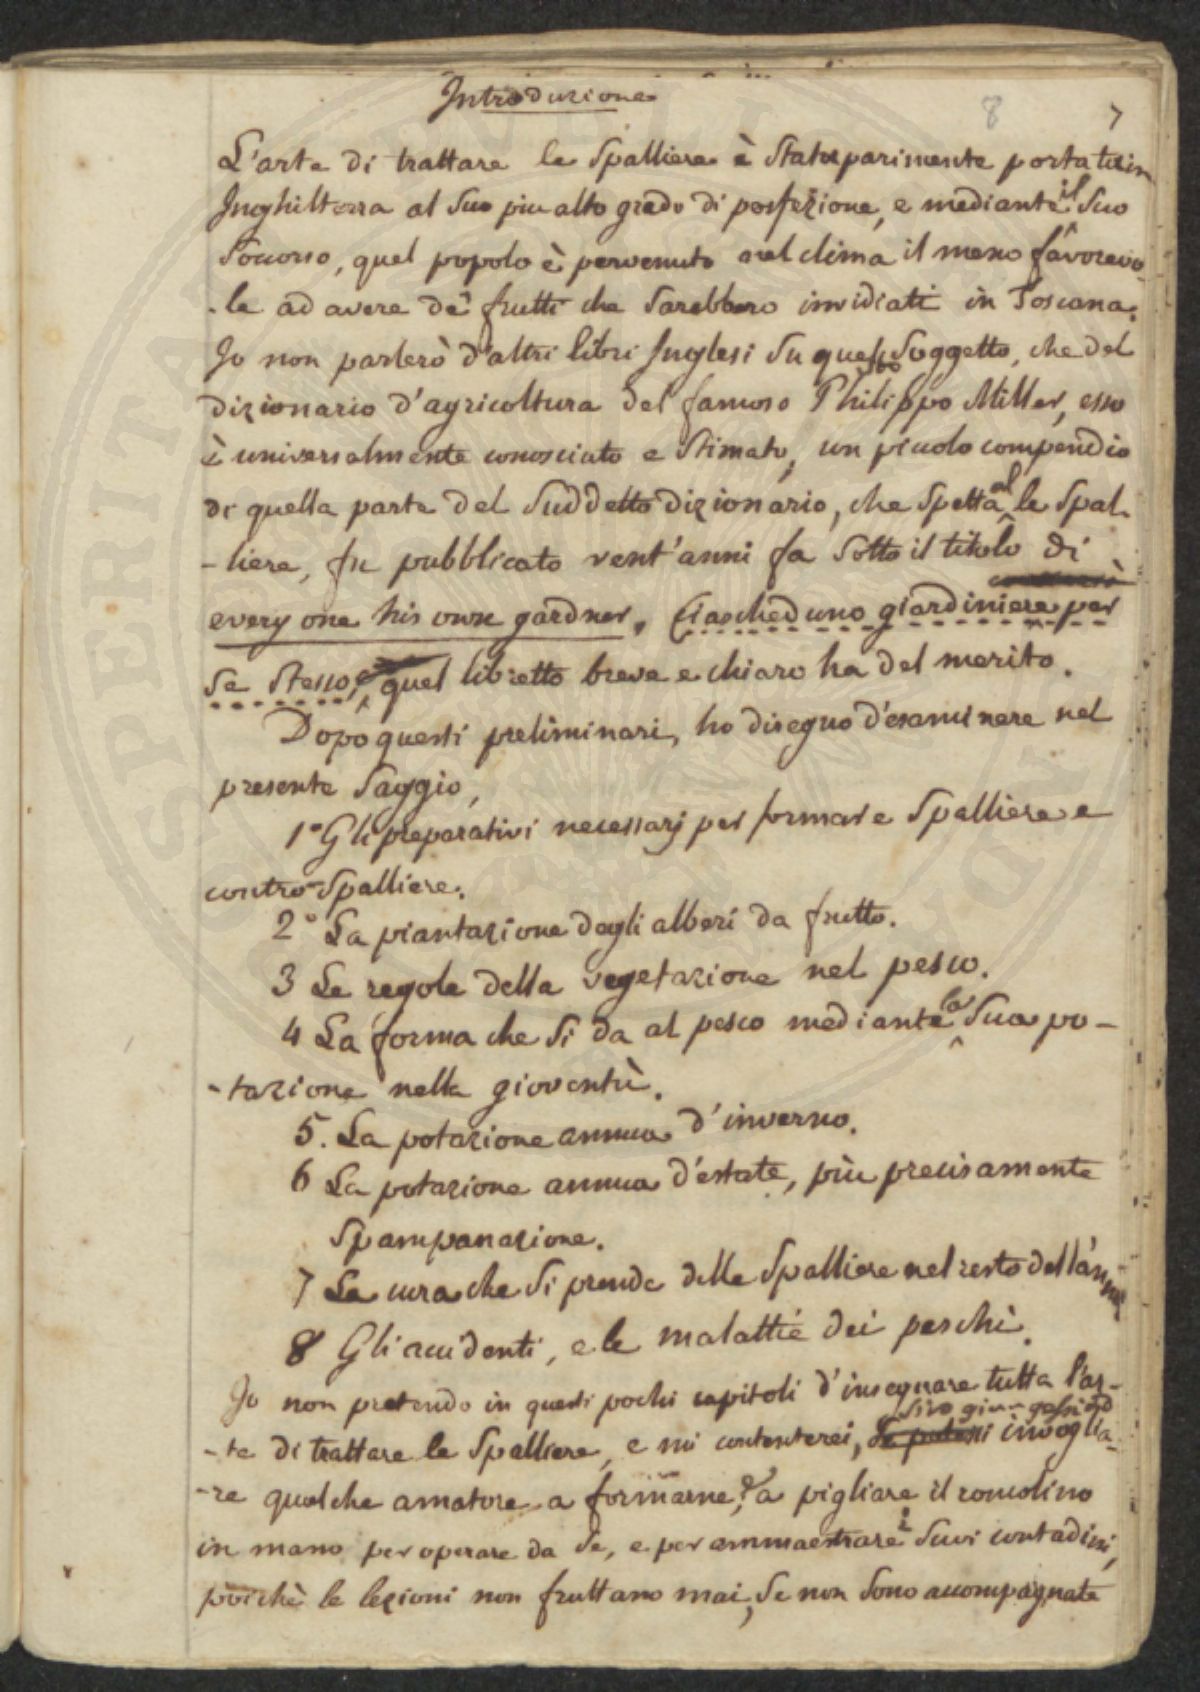 Introduzione
8 7
L'arte di trattare le Spalliere è Stata parimente portata in
Inghilterra al Suo piu alto grado di perfezione, e mediante il Suo
Soccorso, quel popolo è pervenuto nel clima il meno favorevo-
-le ad avere de' frutti che Sarebbero invidiati in Toscana.
Io non parlerò d'altri libri Inglesi Su questo Soggetto, che del
dizionario d'agricoltura del famoso Philippo Miller, esso
è universalmente conosciuto e Stimato, un piccolo compendio
di quella parte del Suddetto dizionario, che Spetta al le Spal-
-liere, fu pubblicato vent'anni fa Sotto il titolo di
every one his own gardner, Ciascheduno giardiniere per
Se Stesso, quel libretto breve e chiaro ha del merito.
Dopo questi preliminari, ho disegno d'esaminare nel
presente Saggio,
1° Gli preparativi necessarj per formare Spalliere e
contro-Spalliere.
2° La piantazione degli alberi da frutto.
3 Le regole della vegetazione nel pesco.
4 La forma che Si da al pesco mediante la Sua po-
-tazione nella gioventù.
5. La potazione annua d'inverno.
6 La potazione annua d'estate, più precisamente
Spampanazione.
7 La cura che Si prende delle Spalliere nel resto dell'anno
8 Gli accidenti, e le malattie dei peschi.
Io non pretendo in questi pochi capitoli d'insegnare tutta l'ar-
-te di trattare le Spalliere, e mi contenterei, Se potessi invoglia-
-re qualche amatore a formarne, e a pigliare il roncolino
in mano per operare da Se, e per ammaestrare i Suoi contadini,
poichè le lezioni non fruttano mai, Se non Sono accompagnate